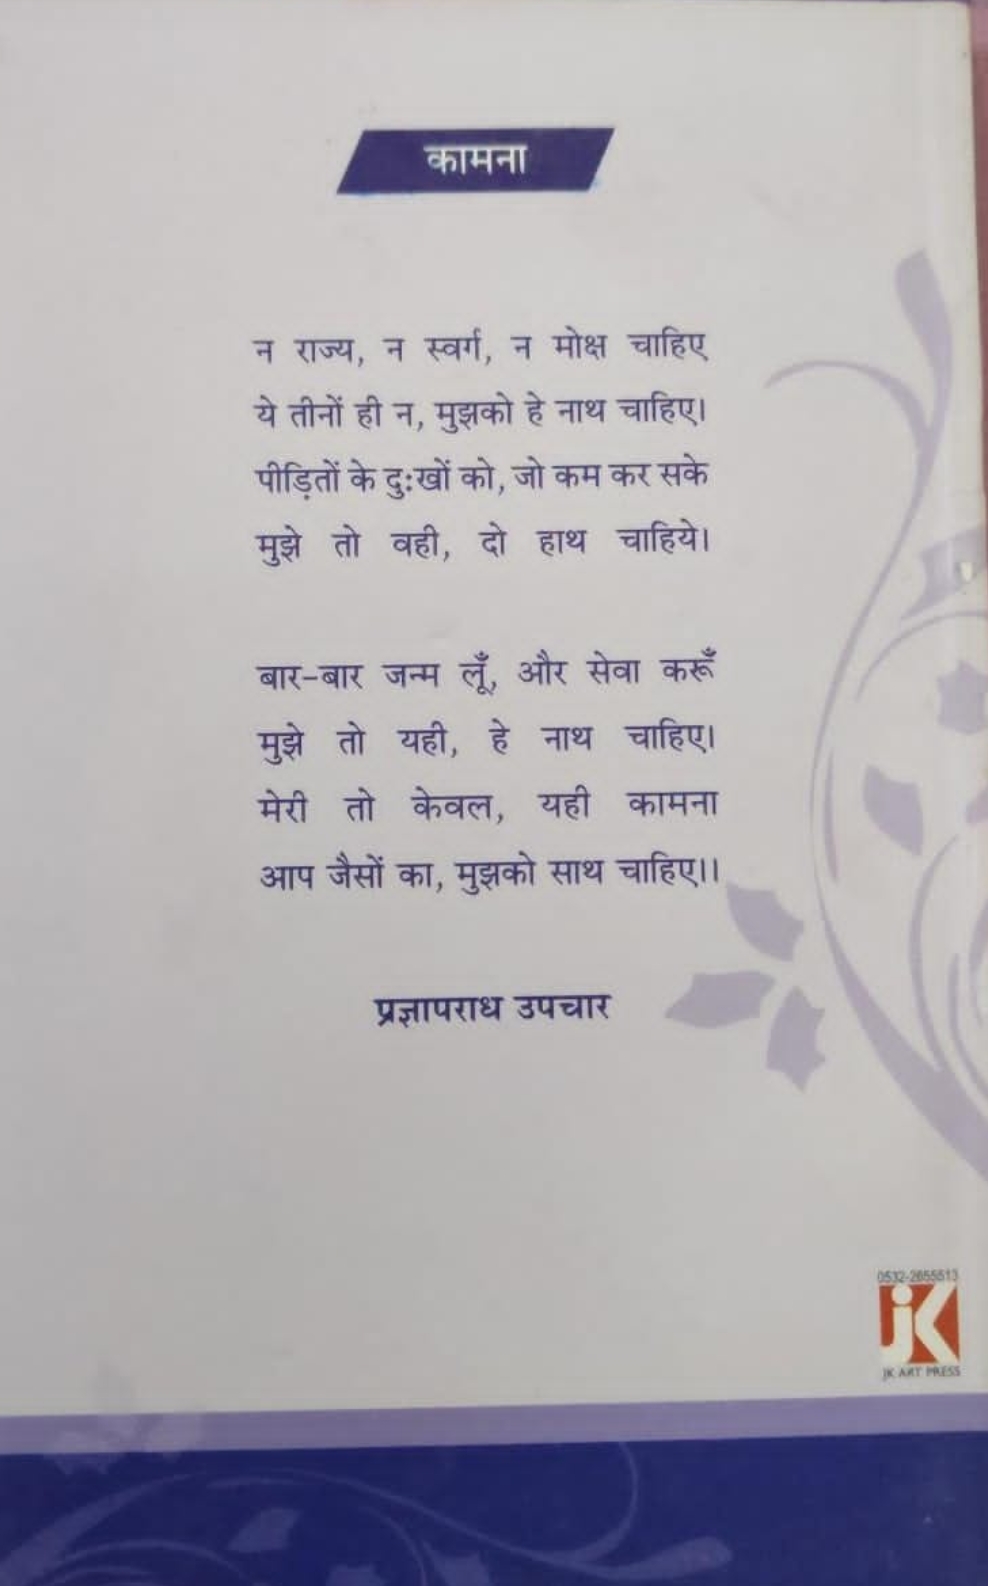 कामना
न राज्य, न स्वर्ग, न मोक्ष चाहिए
ये तीनों ही न, मुझको हे नाथ चाहिए।
पीड़ितों के दुःखों को, जो कम कर सके
मुझे तो वही, दो हाथ चाहिये।
बार-बार जन्म लूँ, और सेवा करूँ
मुझे तो यही, हे नाथ चाहिए।
मेरी तो केवल, यही कामना
आप जैसों का, मुझको साथ चाहिए।।
प्रज्ञापराध उपचार
0532-2655513
JK
JK ART PRESS